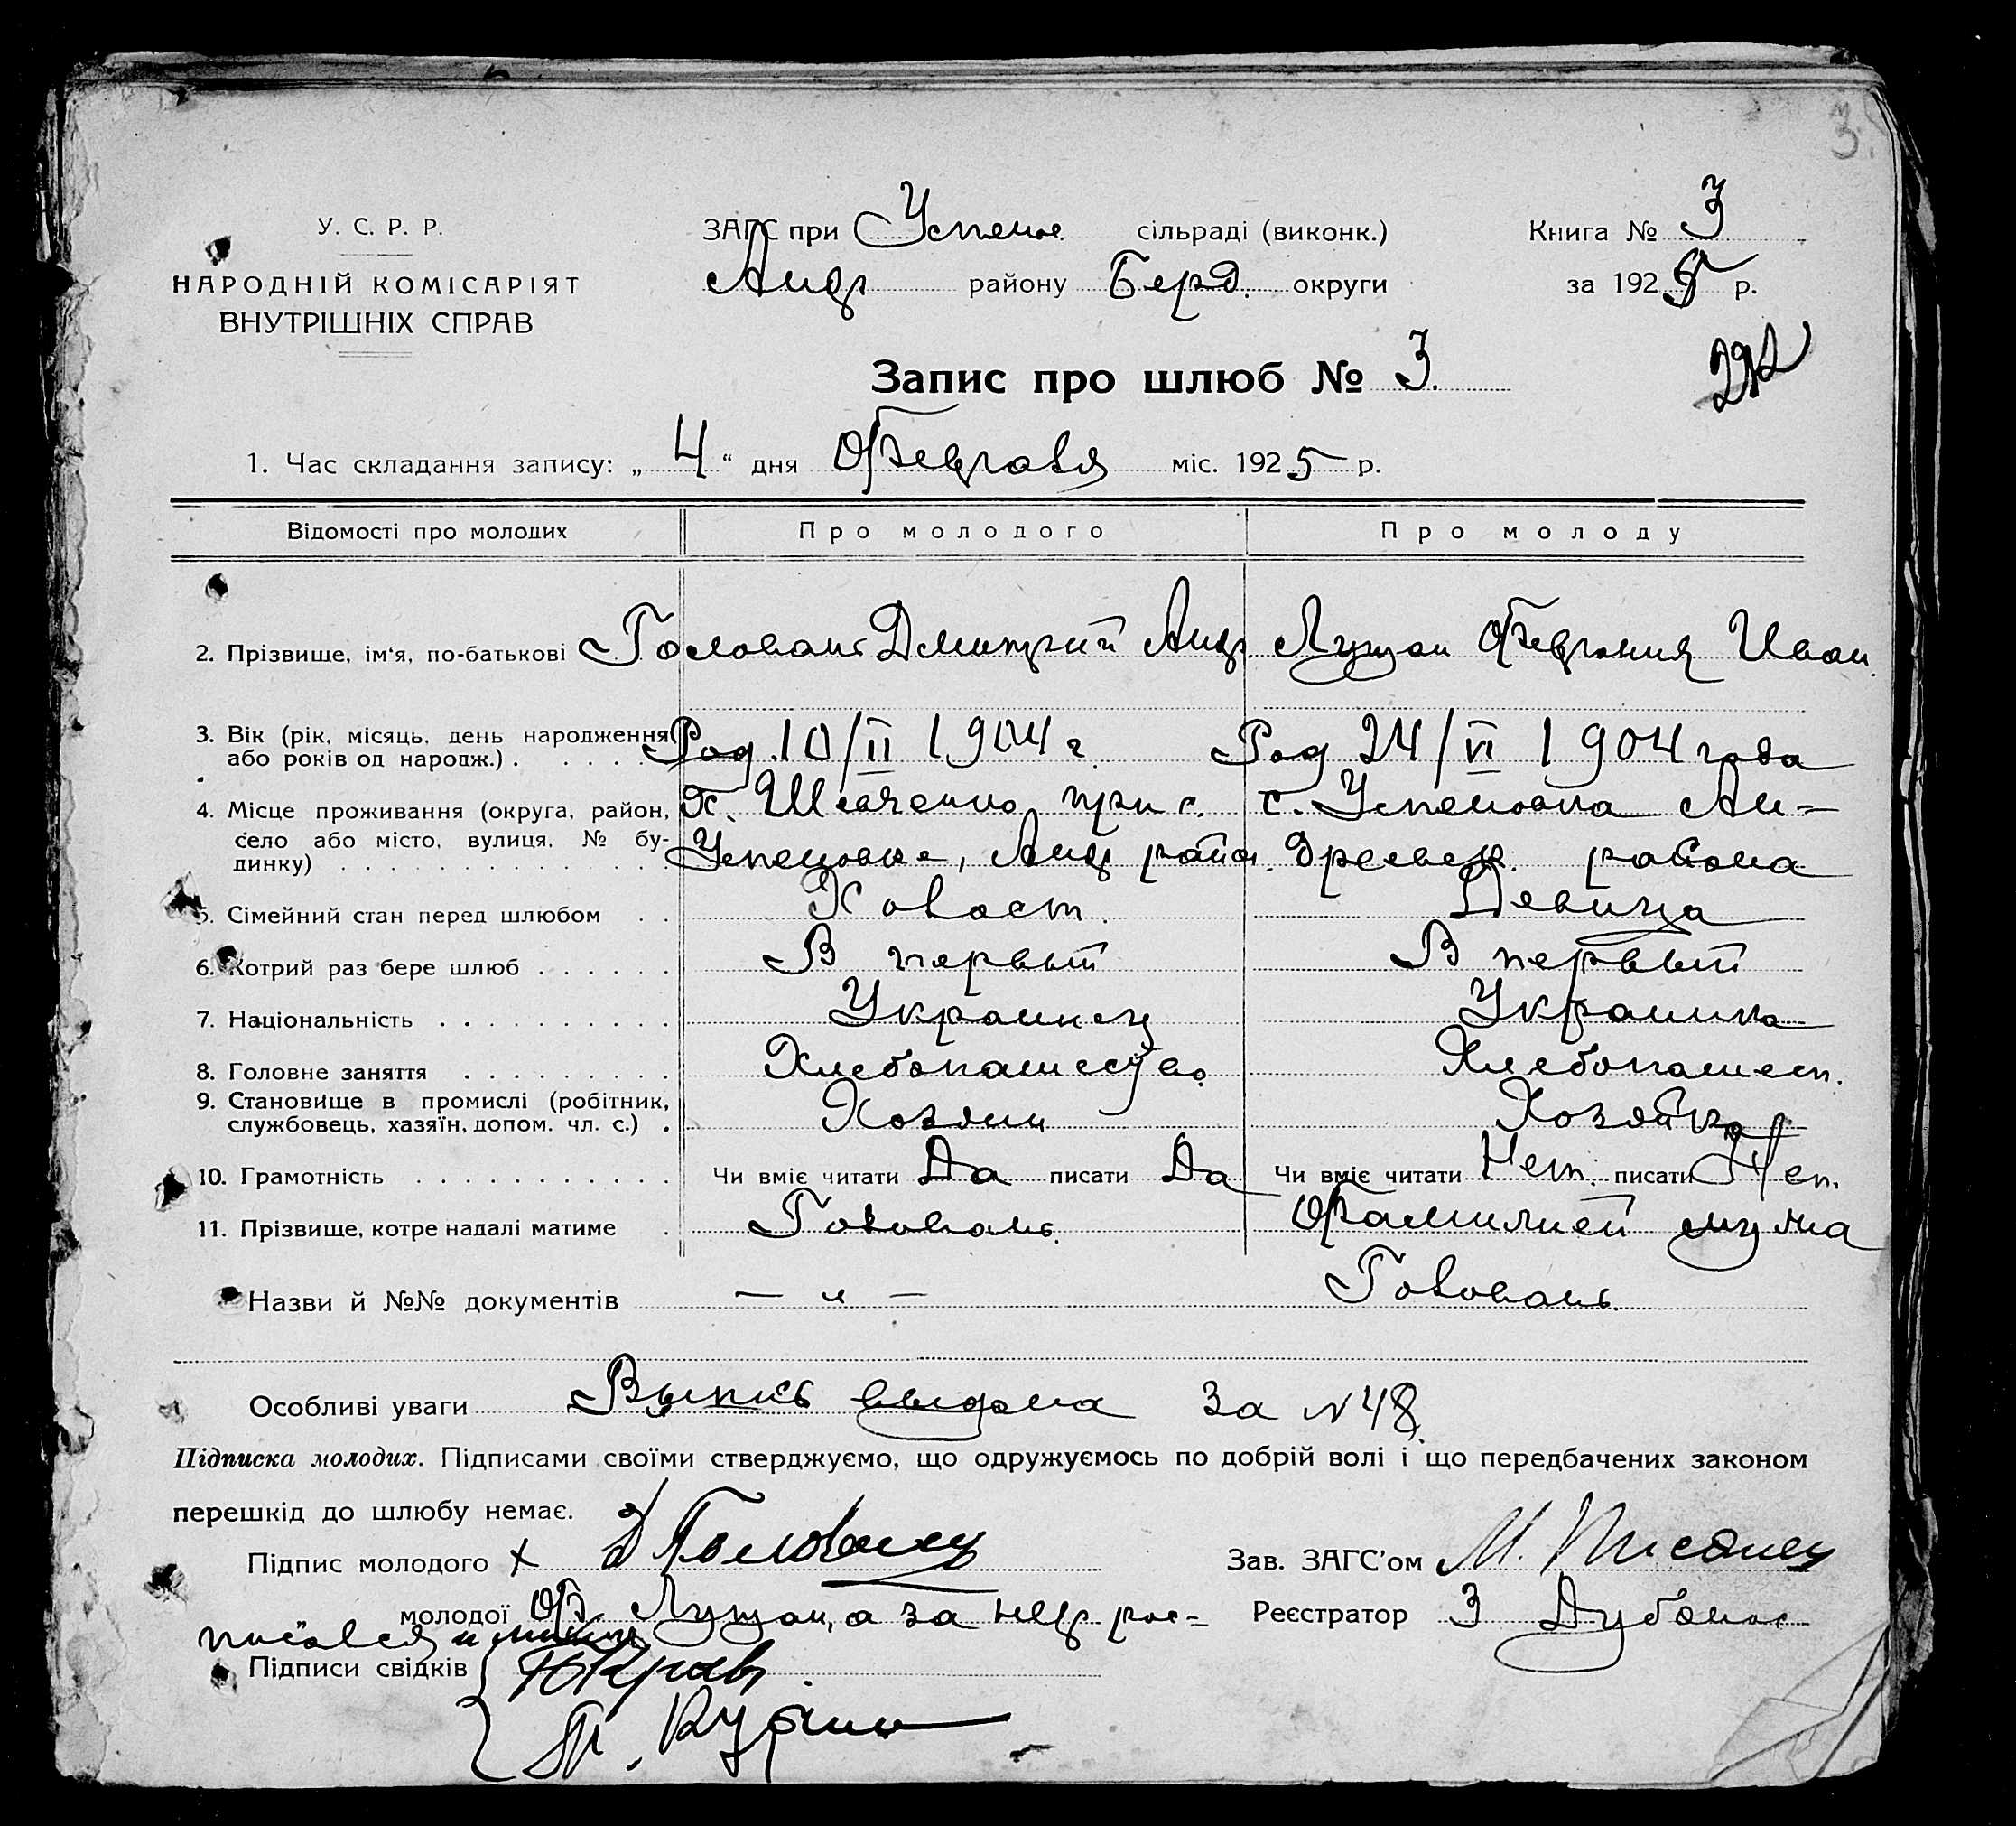 3.
У. С. Р. Р.
НАРОДНІЙ КОМІСАРІЯТ
ВНУТРІШНІХ СПРАВ
ЗАГС при Успенов. сільраді (виконк.)
Андр району Берд. округи
Книга № 3
за 1925 р.
Запис про шлюб № 3.
1. Час складання запису: „ 4 “ дня Февраля міс. 1925 р.
Відомості про молодих Про молодого Про молоду
2. Прізвище, ім‘я, по-батькові Головань Дмитрий Андр Лущан Феврония Иван
3. Вік (рік, місяць, день народження або років од народж.) . . . . . Род. 10/II 1904 г. Род 24/VI 1904 года
4. Місце проживання (округа, район, село або місто, вулиця, № будинку) Х. Шевченко при с. Успеновке, Андр район. с. Успеновка Андреевск. района
5. Сімейний стан перед шлюбом . . Холост. Девица
6. Котрий раз бере шлюб . . . . . . В первый В первый
7. Національність . . . . . . . . . . Украинец Украинка
8. Головне заняття . . . . . . . . . Хлебопашество Хлебопашест.
9. Становище в промислі (робітник, службовець, хазяїн, допом. чл. с.) . Хозяин Хозяйка
10. Грамотність . . . . . . . . . . . Чи вміє читати Да писати Да Чи вміє читати Нет. писати Нет.
11. Прізвище, котре надалі матиме . Головань. Фамилией мужа
Головань.
Назви й №№ документів — „ —
Особливі уваги Выпись выдана за № 48.
Підписка молодих. Підписами своїми стверджуємо, що одружуємось по добрій волі і що передбачених законом
перешкід до шлюбу немає.
Підпис молодого х Д Головань Зав. ЗАГС’ом М.
молодої Ф. Лущан, а за негр рос-
писался Реєстратор З Дубонос
Підписи свідків